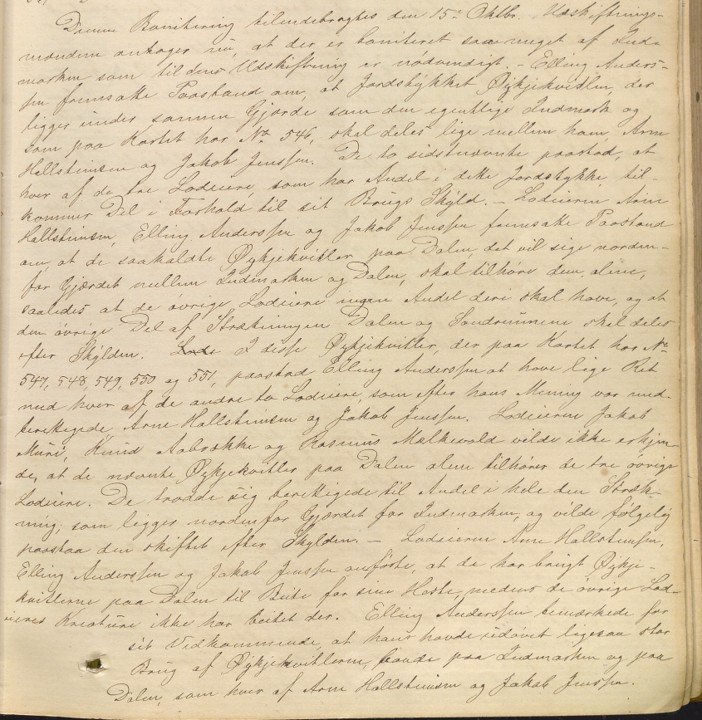 Denne Bonitering tilendebragtes den 15de Oktbr. Udskiftnings-
mændene antager nu, at der er boniteret saa meget af Ind-
marken som til dens Udskiftning er nødvendigt. – Elling Anders-
sen fremsatte Paastand om, at Jordstykket Øykjekvitlen, der
ligger under samme Gjerde som den egentlige Indmark og
som paa Kartet har No 546, skal deles lige mellem ham, Arne
Hallsteinsen og Jakob Jenssen. De to sidstnævnte paastod, at
hver af de tre Lodeiere, som har Andel i dette Jordstykke til-
kommer Del i Forhold til sit Brugs Skyld. – Lodeierne Arne
Hallsteinsen, Elling Anderssen og Jakob Jenssen fremsatte Paastand
om, at de saakaldte Øykjekvitler paa Dalen, det vil sige norden-
for Gjærdet mellem Indmarken og Dalen, skal tilhøre dem alene,
saaledes at de øvrige Lodeiere ingen Andel deri skal have, og at
den øvrige Del af Strækningen Dalen og Sandrinnene skal deles
efter Skylden. I disse Øykjekvitler, der paa Kartet har No
547, 548, 549, 550 og 551, paastod Elling Anderssen at have lige Ret
med hver af de andre to Lodeiere, som efter hans Mening var med-
berettigede Arne Hallsteinsen og Jakob Jenssen. Lodeierne Jakob
Muri, Knud Aabrække og Rasmus Melkevold vilde ikke erkjen-
de, at de nævnte Øykjekvitler paa Dalen alene tilhører de tre øvrige
Lodeiere. De troede sig berettigede til Andel i hele den Stræk-
ning, som ligger nordenfor Gjærdet for Indmarken, og vilde følgelig
paastaa den skiftet efter Skylden. – Lodeierne Arne Hallsteinsen,
Elling Anderssen og Jakob Jenssen anførte, at de har brugt Øykje-
kvitlerne paa Dalen til Beite for sine Heste, medens de øvrige Lod-
eieres Kreature ikke har beitet der. Elling Anderssen bemærkede for
sit Vedkommende, at han havde udøvet ligesaa stor
Brug af Øykjekvitlerne, baade paa Indmarken og paa
Dalen, som hver af Arne Hallsteinsen og Jakob Jenssen.